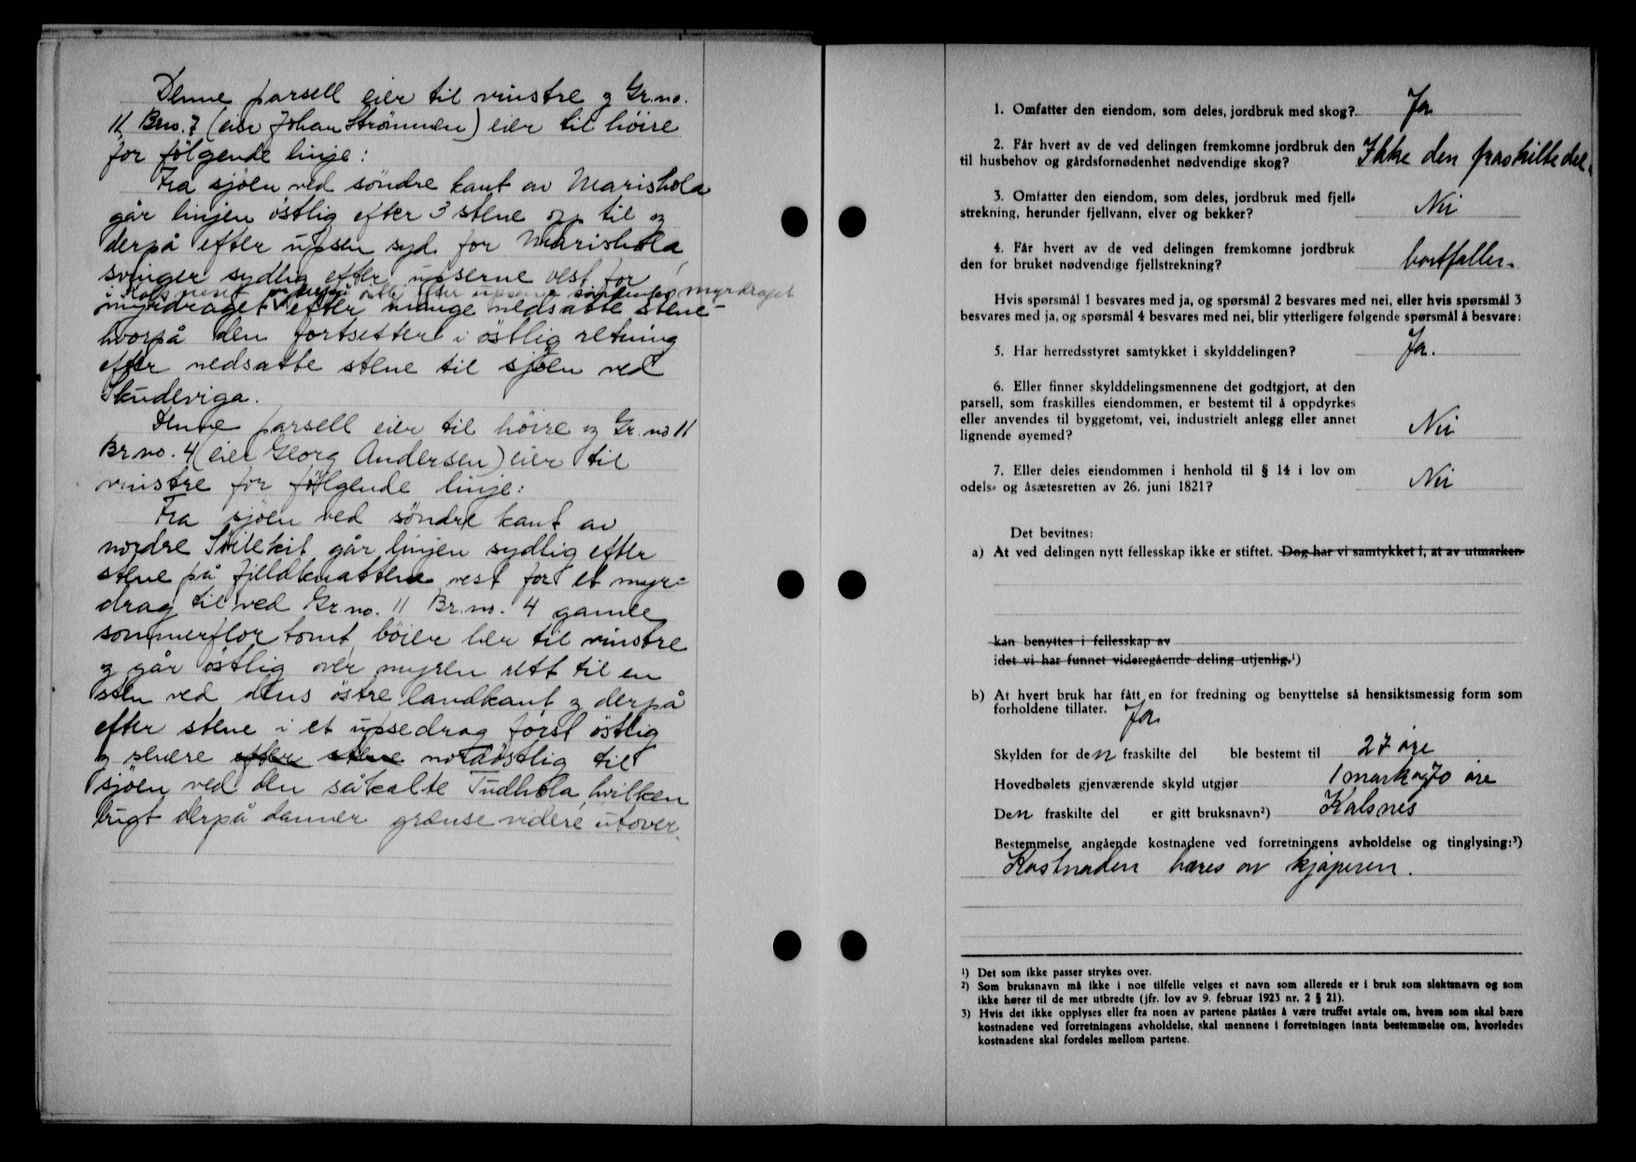 Denne parsell eier til vinstre og Gr.no.
11, Brno. 7 (eier Johan Strømmen) eier til höire
for følgende linje:
Fra sjøen ved söndre kant av Marishola
går linjen östlig efter 3 stene op til og
derpå efter upsen syd for Marishola,
svinger sydlig efter upserne vest for
myrdraget
myrdraget efter mange nedsatte stene-
hvorpå den fortsetter i östlig retning
efter nedsatte stene til sjøen ved
Skudeviga.
Denne parsell eier til höire og Gr.no 11
Br.no. 4 (eier Georg Andersen) eier til
vinstre for følgende linje:
Fra sjöen ved söndre kant av
nordre går linjen sydlig efter
stene på fjeldknattene vest for et myr-
drag til ved Gr.no. 11 Br.no. 4 gamle
sommerflor tomt, böier her til vinstre
og går östlig over myren rett til en
sten ved dens östre landkant og derpå
efter stene i et upsedrag först östlig
og senere efter stene nordöstlig til
sjöen ved den såkalte Tudhola, hvilken
bugt derpå danner grænse videre utover.
1. Omfatter den eiendom, som deles, jordbruk med skog? Ja
2. Får hvert av de ved delingen fremkomne jordbruk den
til husbehov og gårdsfornødenhet nødvendige skog? Ikke den fraskilte del.
3. Omfatter den eiendom, som deles, jordbruk med fjell-
strekning, herunder fjellvann, elver og bekker? Nei
4. Får hvert av de ved delingen fremkomne jordbruk
den for bruket nødvendige fjellstrekning? bortfaller.
Hvis spørsmål 1 besvares med ja, og spørsmål 2 besvares med nei, eller hvis spørsmål 3
besvares med ja, og spørsmål 4 besvares med nei, blir ytterligere følgende spørsmål å besvare:
5. Har herredsstyret samtykket i skylddelingen? Ja.
6. Eller finner skylddelingsmennene det godtgjort, at den
parsell, som fraskilles eiendommen, er bestemt til å oppdyrkes
eller anvendes til byggetomt, vei, industrielt anlegg eller annet
lignende øyemed? Nei
7. Eller deles eiendommen i henhold til § 14 i lov om
odels- og åsætesretten av 26. juni 1821? Nei
Det bevitnes:
a) At ved delingen nytt fellesskap ikke er stiftet. Dog har vi samtykket i, at av utmarken
kan benyttes i fellesskap av
idet vi har funnet videregående deling utjenlig.¹)
b) At hvert bruk har fått en for fredning og benyttelse så hensiktsmessig form som
forholdene tillater. Ja
Skylden for den fraskilte del ble bestemt til 27 øre
Hovedbølets gjenværende skyld utgjør 1 mark og 70 øre
Den fraskilte del er gitt bruksnavn²) Kalsnes
Bestemmelse angående kostnadene ved forretningens avholdelse og tinglysing:³)
Kostnaden bæres av kjøperen.
¹) Det som ikke passer strykes over.
²) Som bruksnavn må ikke i noe tilfelle velges et navn som allerede er i bruk som slektsnavn og som
ikke hører til de mer utbredte (jfr. lov av 9. februar 1923 nr. 2 § 21).
³) Hvis det ikke opplyses eller fra noen av partene påståes å være truffet avtale om, hvem som skal bære
kostnadene ved forretningens avholdelse, skal mennene i forretningen innta bestemmelse om, hvorledes
kostnadene skal fordeles mellom partene.